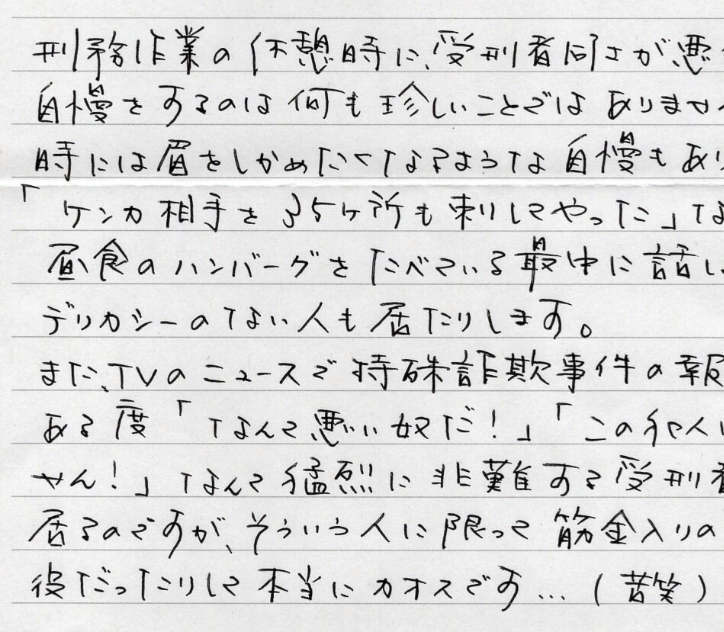 刑務作業の休憩時に、受刑者同士が悪
自慢をするのは何も珍しいことではありませ
時には眉をしかめたくなるような自慢もあり
「ケンカ相手を35ヶ所も刺してやった」な
昼食のハンバーグをたべている最中に話し
デリカシーのない人も居たりします。
また、TVのニュースで特殊詐欺事件の報
ある度「なんて悪い奴だ！」「この犯人
せん！」なんて猛烈に非難する受刑者
居るのですが、そういう人に限って筋金入りの
役だったりして本当にカオスです…（苦笑）